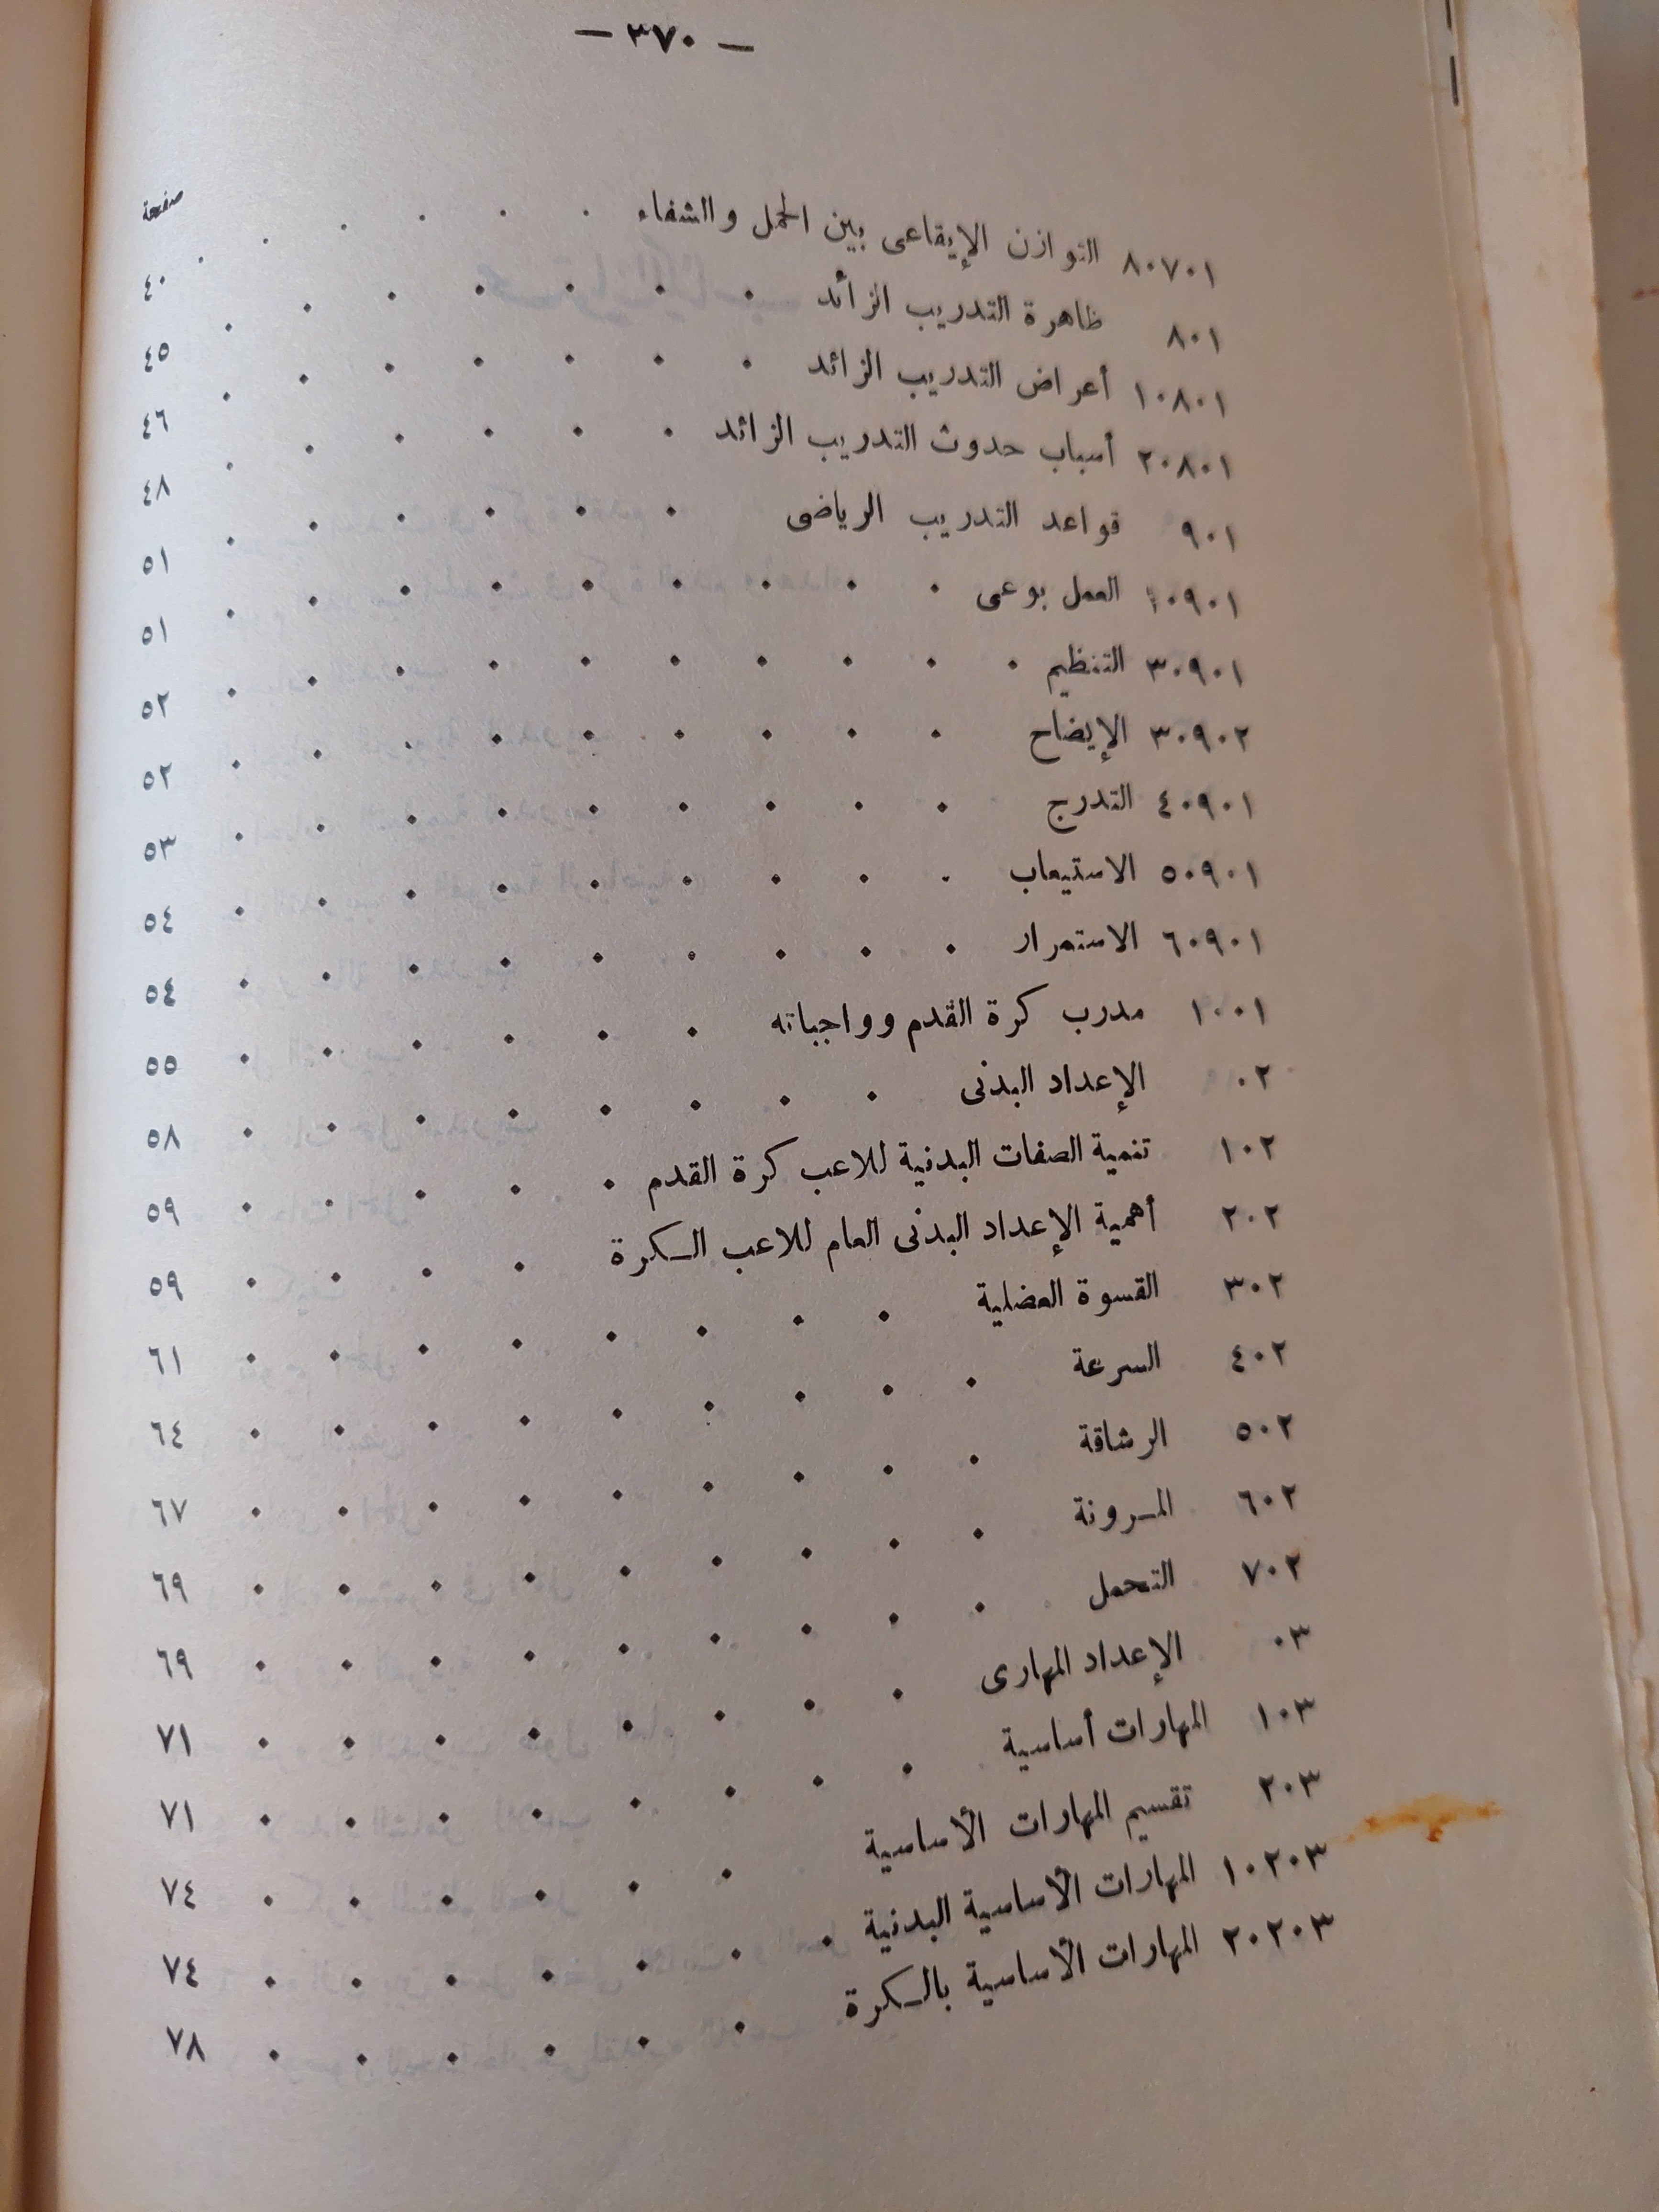 — ٣٧٠ —
صفحة
٨٠٧٠١ التوازن الإيقاعى بين الحمل والشفاء ٤٠
٨٠١ ظاهرة التدريب الزائد ٤٥
١٠٨٠١ أعراض التدريب الزائد ٤٦
٢٠٨٠١ أسباب حدوث التدريب الزائد ٤٨
٩٠١ قواعد التدريب الرياضى ٥١
١٠٩٠١ العمل بوعى ٥١
٣٠٩٠١ التنظيم ٥٢
٣٠٩٠٢ الإيضاح ٥٢
٤٠٩٠١ التدرج ٥٣
٥٠٩٠١ الاستيعاب ٥٤
٦٠٩٠١ الاستمرار ٥٤
١٠٠١ مدرب كرة القدم وواجباته ٥٥
٠٢ الإعداد البدنى ٥٨
١٠٢ تنمية الصفات البدنية للاعب كرة القدم ٥٩
٢٠٢ أهمية الإعداد البدنى العام للاعب الكرة ٥٩
٣٠٢ القسوة العضلية ٦١
٤٠٢ السرعة ٦٤
٥٠٢ الرشاقة ٦٧
٦٠٢ المرونة ٦٩
٧٠٢ التحمل ٦٩
٠٣ الإعداد المهارى ٧١
١٠٣ المهارات أساسية ٧١
٢٠٣ تقسيم المهارات الأساسية ٧٤
١٠٢٠٣ المهارات الأساسية البدنية ٧٤
٢٠٢٠٣ المهارات الأساسية بالكرة ٧٨